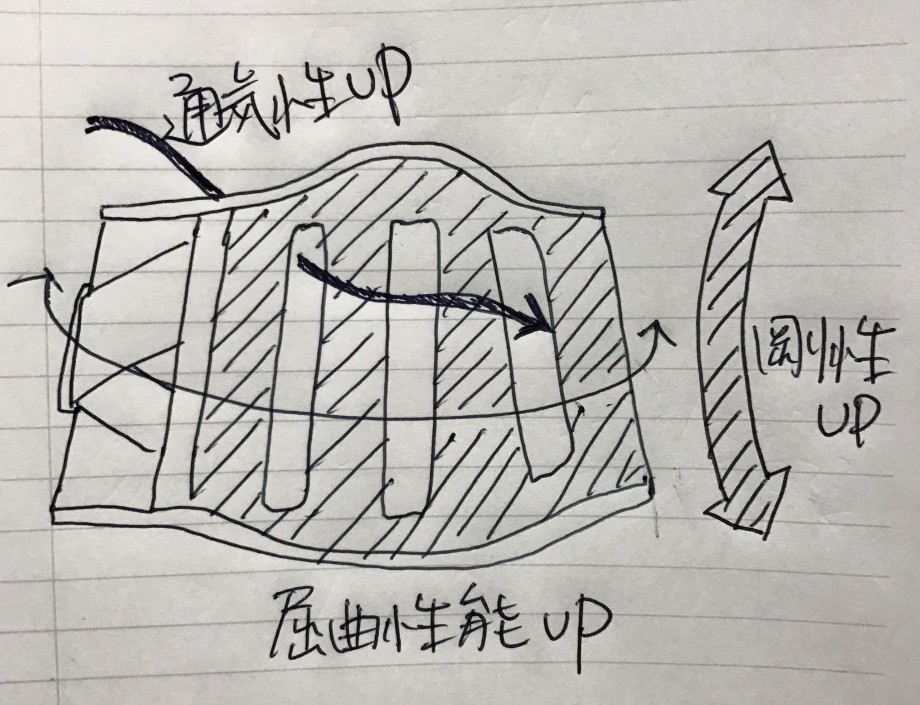 通気性UP
剛性
UP
屈曲性能UP